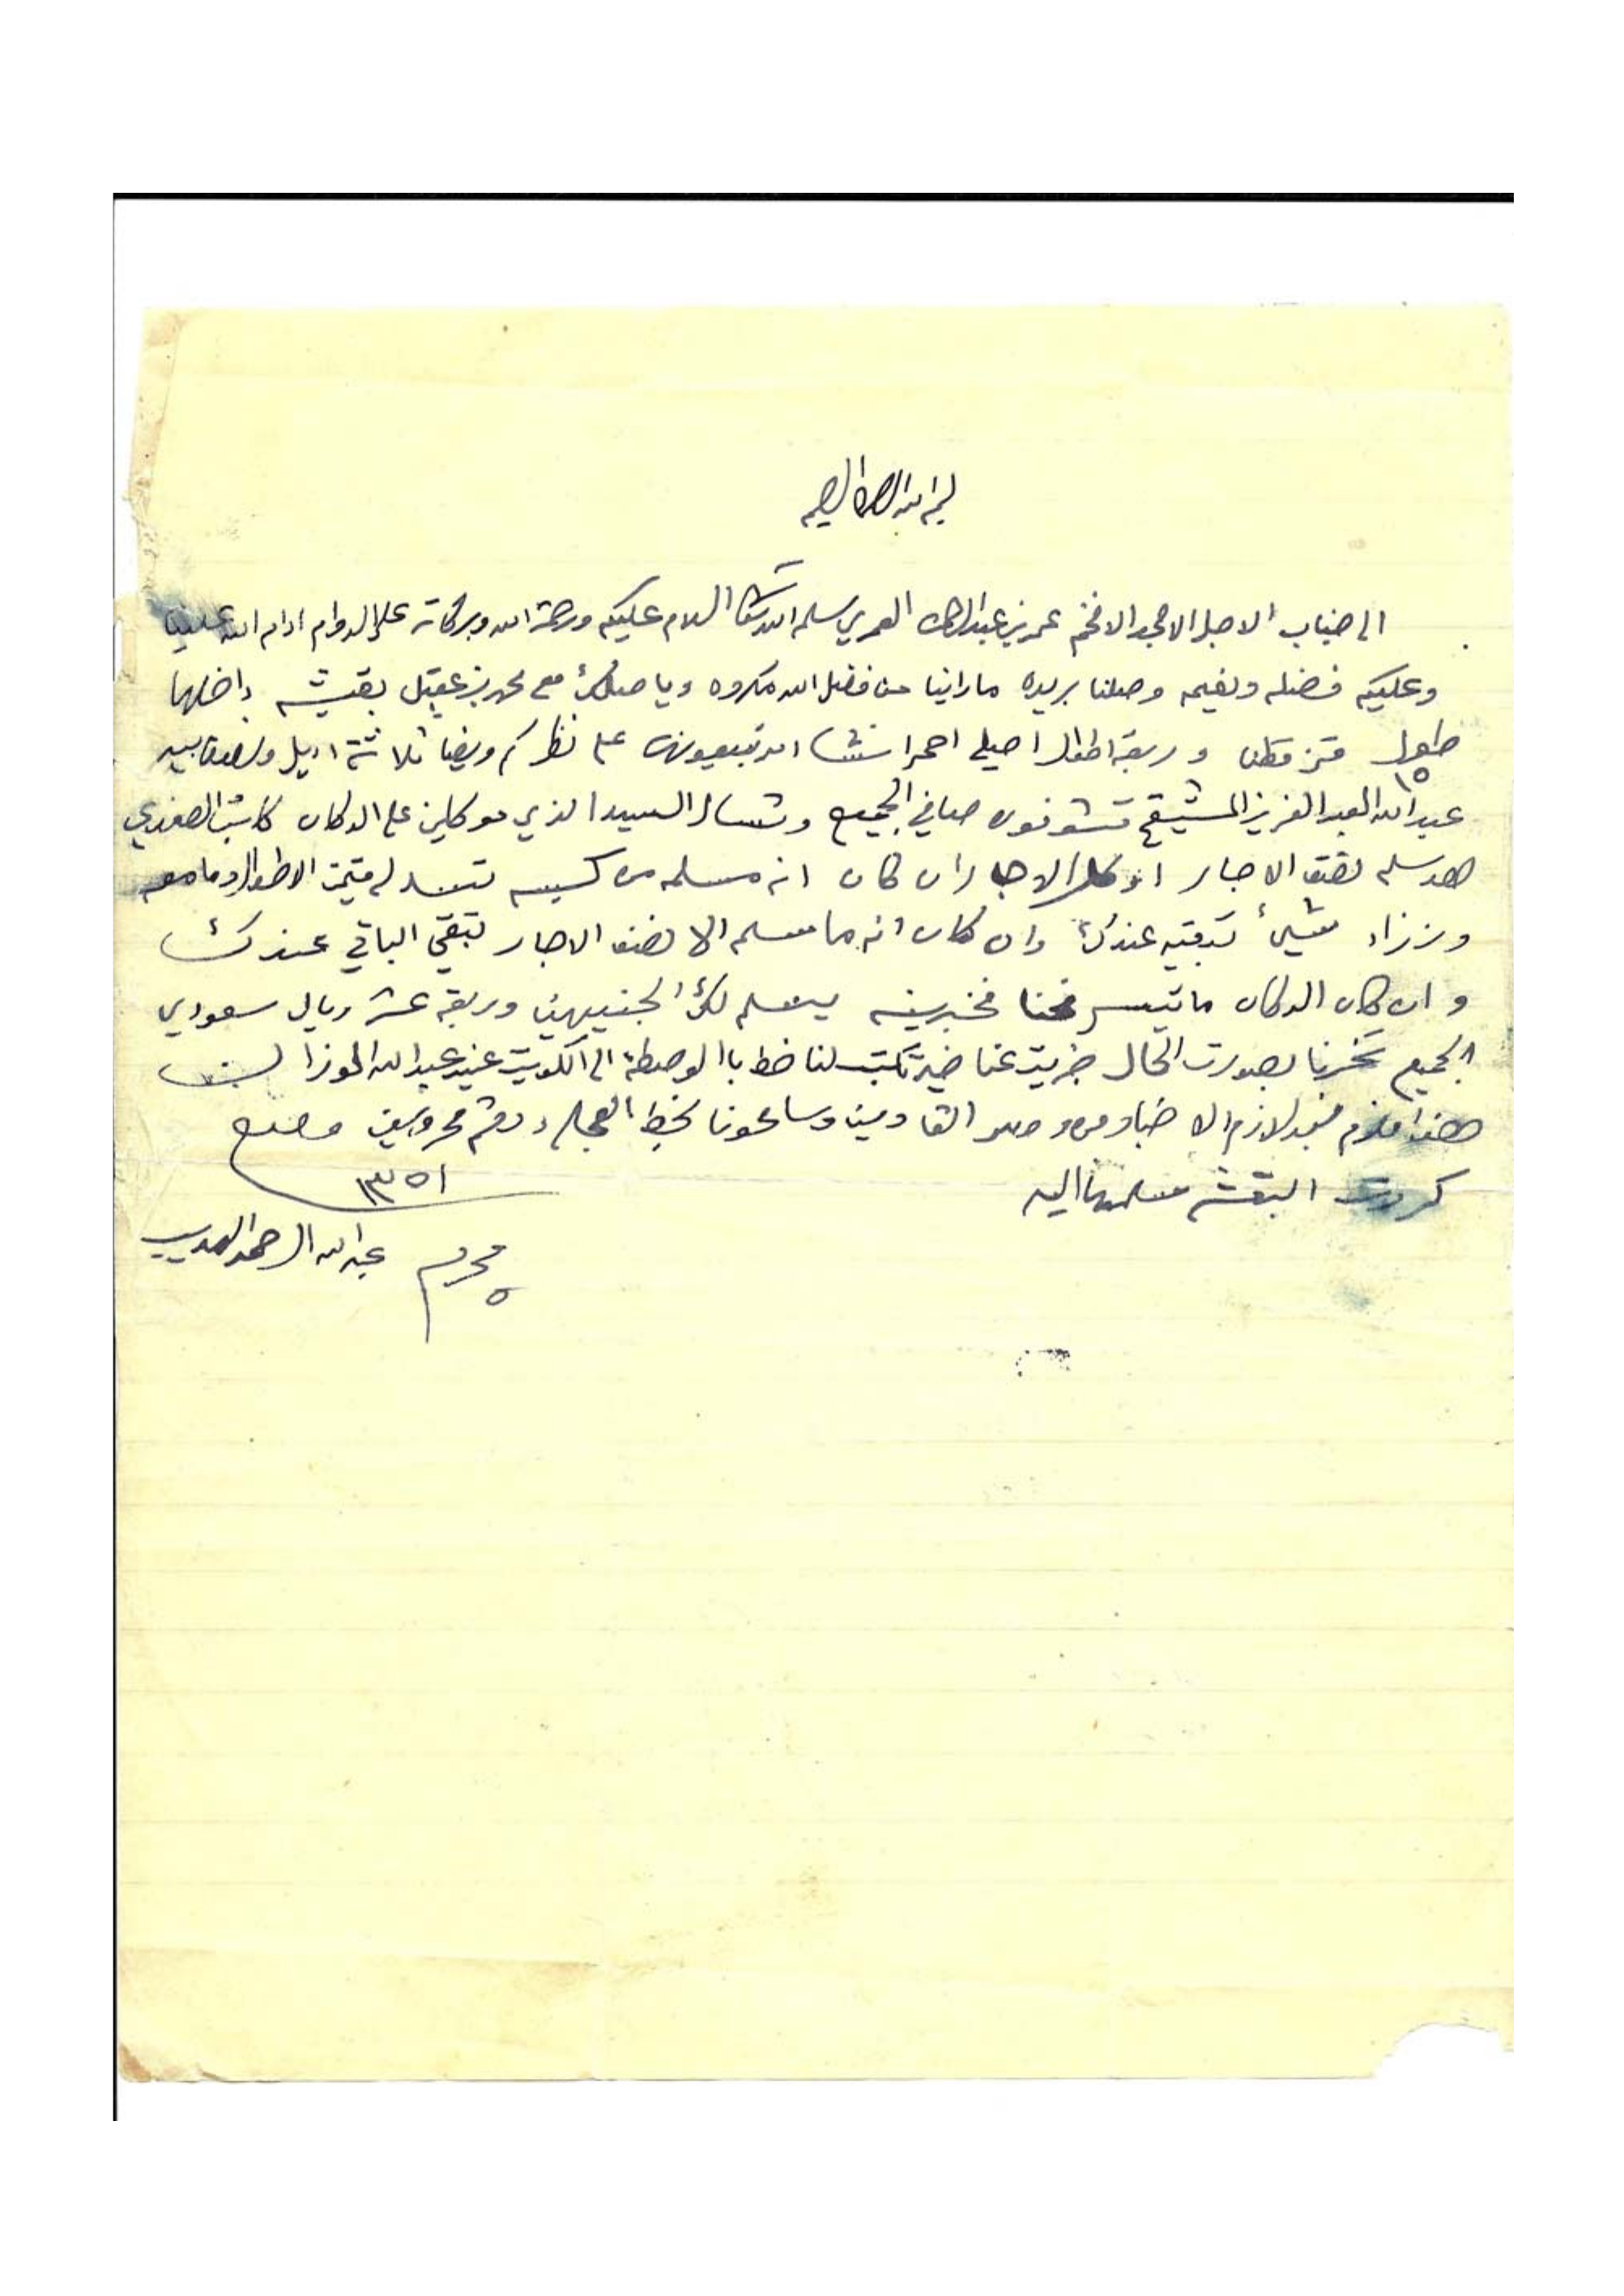 بسم الله الرحمن الرحيم
الى جناب الاجل الامجد الافخم عمر بن عبدالرحمن العمري سلمه الله تعالى السلام عليكم ورحمة الله وبركاته على الدوام ادام الله علينا
وعليكم فضله ونعيمه وصلنا بريده ماراينا من فضل الله مكروه وياصلك مع محمد بن عقيل بقشه داخلها
طول ١٥ وربعة اطوال اصيلي احمر انشا الله تبيعونهن على نظركم وبضا ثلاثة اريل ونصف بيد
عبدالله العبدالعزيز المشيقح تشوفون صافي الجميع وتسال السيد الذي موكلين على الدكان كاتب الصفدي
هو سلم نصف الاجار او كل الاجار ان كان انه مسلمه من كسيه تسدد له قيمة الاطوال ومامعه
ونزاد شيء تبقيه عندك وان كان انه ما سلم الا نصف الاجار تبقي الباقي عندك
وان كان الدكان ماتيسر فحنا مخبرينه يسلم لك الجنيهين وربعة عشر ريال سعودي
الجميع تخبرنا بصورت الحال جزيت عنا خير تكتب لنا خط باالوصطه الى الكويت عند عبدالله الموزا
هذا مالزم مع لازم الاخبار مع القادمين وسامحونا بخط العجله ودمتم محروسين
كررت البقشه مسلمها اليه
١٣٥١
محرم ٥
عبدالله الرحمن